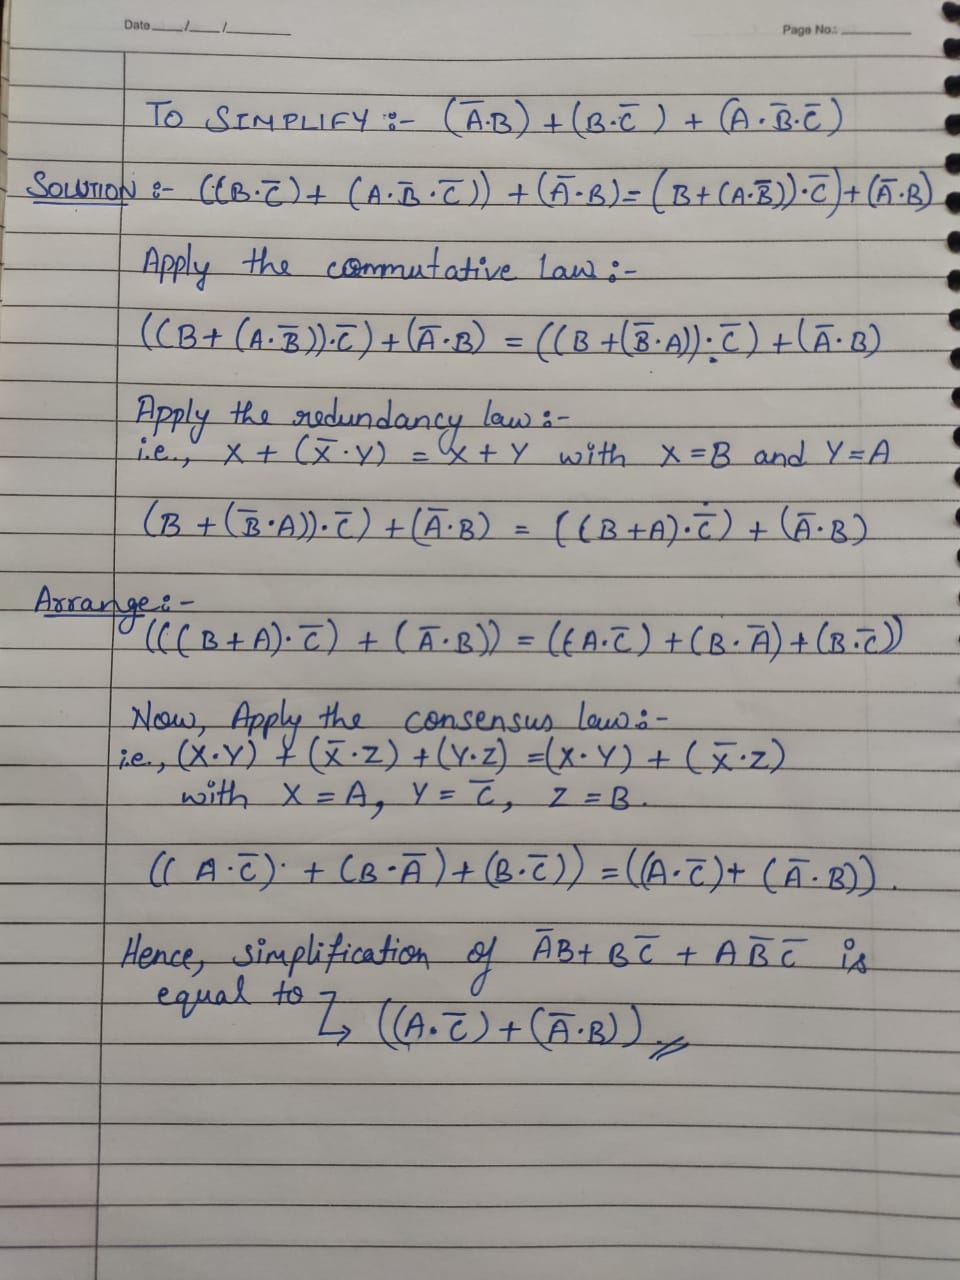 Date___/___/______ Page No.: ______
TO SIMPLIFY :- (A̅.B) + (B.C̅) + (A.B̅.C̅)
SOLUTION :- ((B.C̅) + (A.B̅.C̅)) + (A̅.B) = (B + (A.B̅)).C̅) + (A̅.B)
Apply the commutative law :-
((B + (A.B̅)).C̅) + (A̅.B) = ((B + (B̅.A)).C̅) + (A̅.B)
Apply the redundancy law :-
i.e., X + (X̅.Y) = X + Y with X = B and Y = A
(B + (B̅.A)).C̅) + (A̅.B) = ((B+A).C̅) + (A̅.B)
Arrange :-
(((B+A).C̅) + (A̅.B)) = ((A.C̅) + (B.A̅) + (B.C̅))
Now, Apply the consensus law :-
i.e., (X.Y) + (X̅.Z) + (Y.Z) = (X.Y) + (X̅.Z)
with X = A, Y = C̅, Z = B.
((A.C̅). + (B.A̅) + (B.C̅)) = ((A.C̅) + (A̅.B)).
Hence, simplification of A̅B + BC̅ + AB̅C̅ is
equal to ↳ ((A.C̅) + (A̅.B))